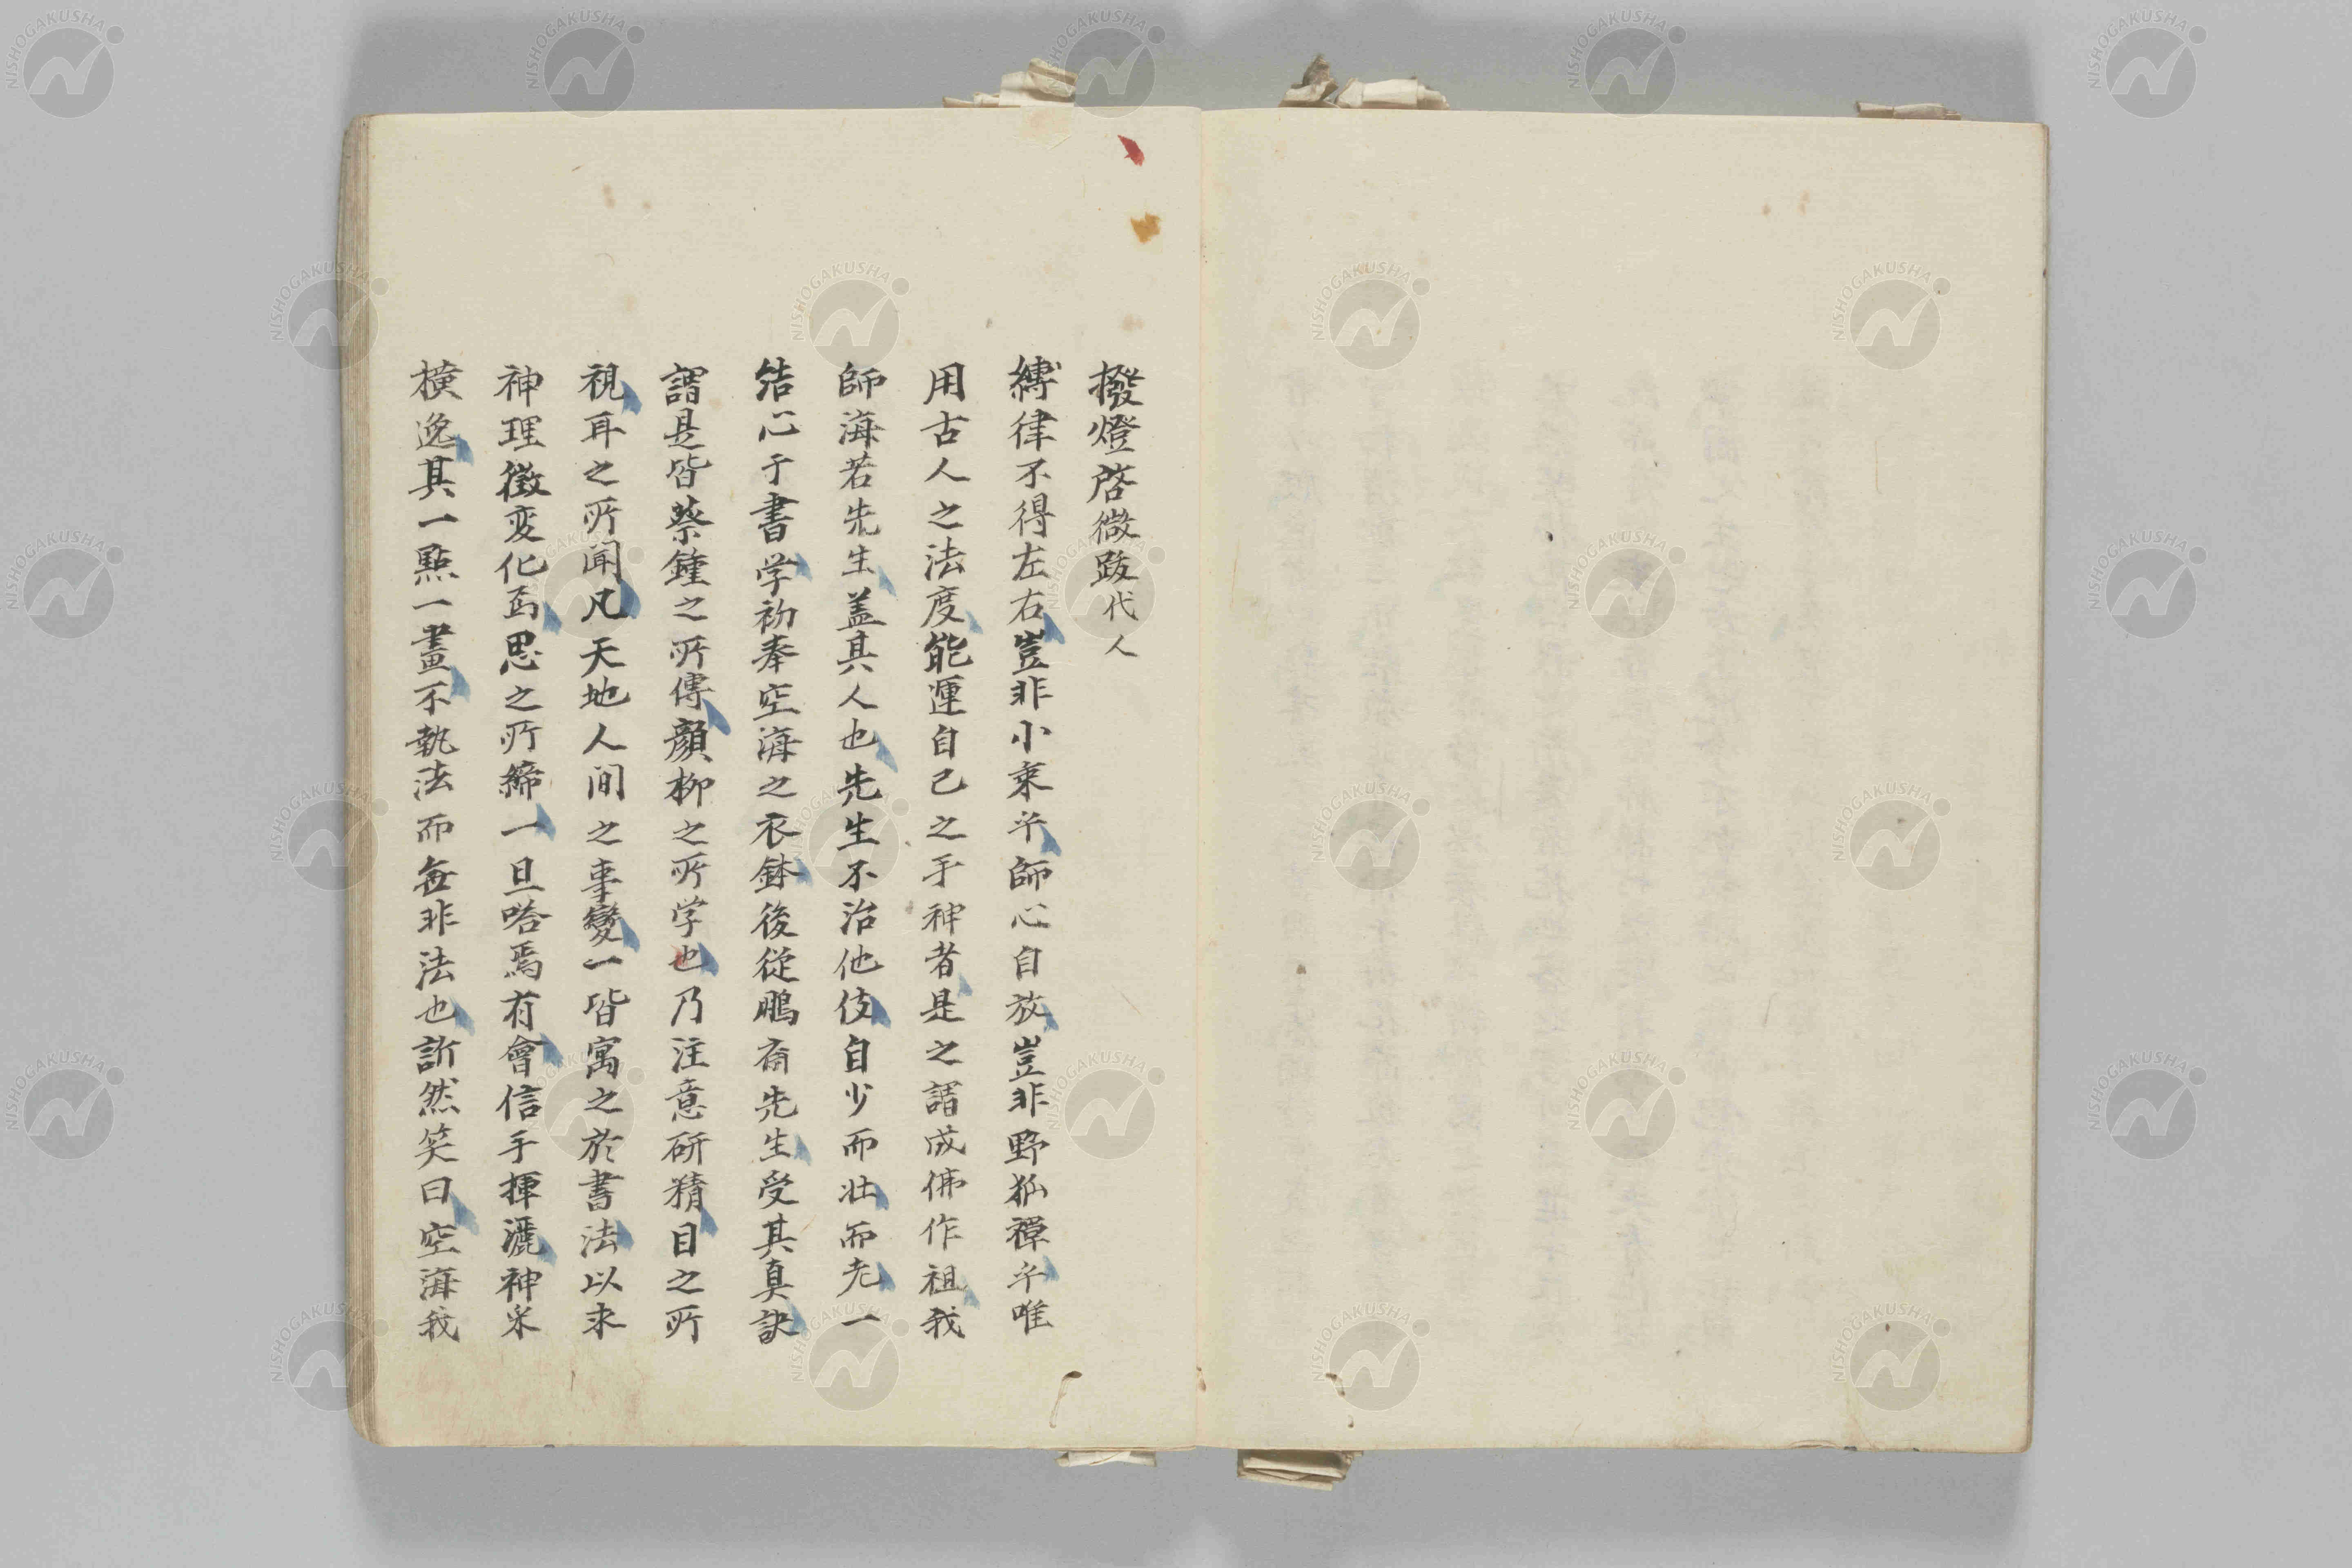 撥燈啓微跋代人
縛律不得左右豈非小乘乎師心自放豈非野狐禪乎唯
用古人之法度能運自己之手神者是之謂成佛作祖我
師海若先生盖其人也先生不治他伎自少而壮而老一
结心于書学初奉空海之衣鉢後從鵬斎先生受其真訣
謂是皆蔡鍾之所傳顔柳之所学也乃注意研精目之所
視耳之所聞凡天地人間之事變一皆寓之於書法以求
神理徴変化函思之所締一旦嗒焉有會信手揮灑神采
横逸其一點一畫不執法而每非法也訢然笑曰空海我
NISHOGAKUSHA